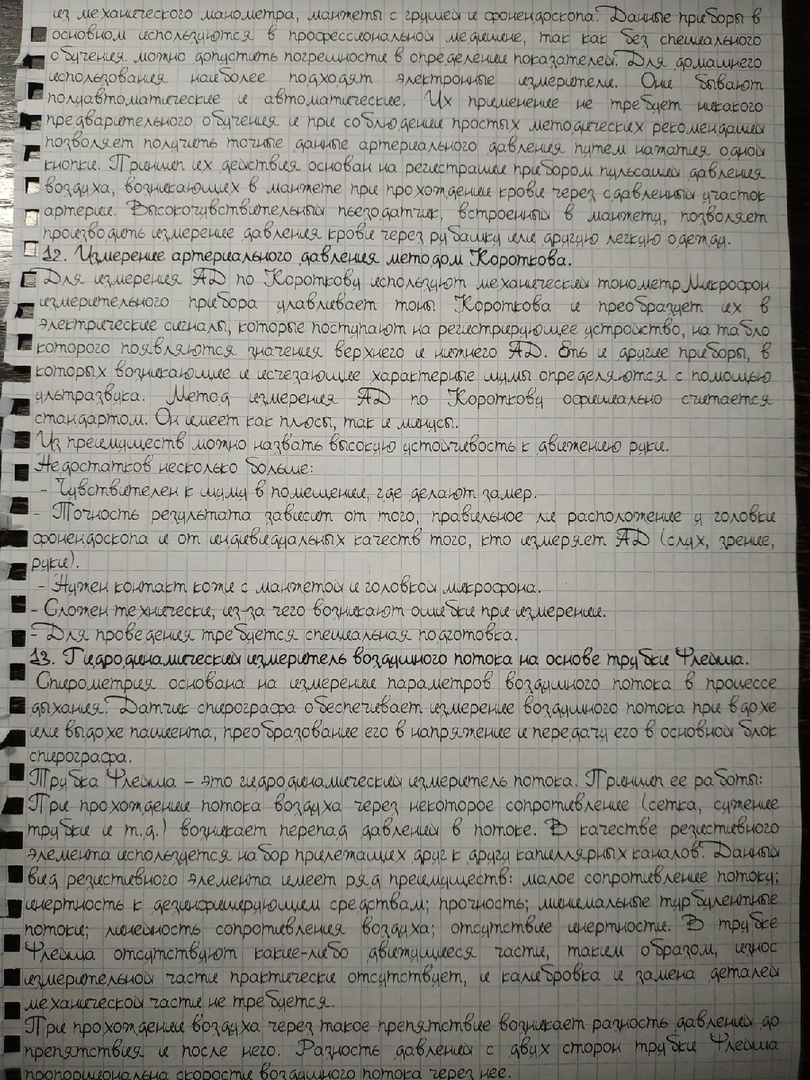 из механического манометра, манжеты с грушей и фонендоскопа. Данные приборы в
основном используются в профессиональной медицине, так как без специального
обучения можно допустить погрешности в определении показателей. Для домашнего
использования наиболее подходят электронные измерители. Они бывают
полуавтоматические и автоматические. Их применение не требует никакого
предварительного обучения и при соблюдении простых методических рекомендаций
позволяет получить точные данные артериального давления путем нажатия одной
кнопки. Принцип их действия основан на регистрации прибором пульсаций давления
воздуха, возникающих в манжете при прохождении крови через сдавленный участок
артерии. Высокочувствительный пьезодатчик, встроенный в манжету, позволяет
производить измерение давления крови через рубашку или другую легкую одежду.
12. Измерение артериального давления методом Короткова.
Для измерения АД по Короткову используют механический тонометр. Микрофон
измерительного прибора улавливает тоны Короткова и преобразует их в
электрические сигналы, которые поступают на регистрирующее устройство, на табло
которого появляются значения верхнего и нижнего АД. Есть и другие приборы, в
которых возникающие и исчезающие характерные шумы определяются с помощью
ультразвука. Метод измерения АД по Короткову официально считается
стандартом. Он имеет как плюсы, так и минусы.
Из преимуществ можно назвать высокую устойчивость к движению руки.
Недостатков несколько больше:
- Чувствителен к шуму в помещении, где делают замер.
- Точность результата зависит от того, правильное ли расположение у головки
фонендоскопа и от индивидуальных качеств того, кто измеряет АД (слух, зрение,
руки).
- Нужен контакт кожи с манжетой и головкой микрофона.
- Сложен технически, из-за чего возникают ошибки при измерении.
- Для проведения требуется специальная подготовка.
13. Гидродинамический измеритель воздушного потока на основе трубки Флейша.
Спирометрия основана на измерении параметров воздушного потока в процессе
дыхания. Датчик спирографа обеспечивает измерение воздушного потока при вдохе
или выдохе пациента, преобразование его в напряжение и передачу его в основной блок
спирографа.
Трубка Флейша – это гидродинамический измеритель потока. Принцип ее работы:
При прохождении потока воздуха через некоторое сопротивление (сетка, сужение
трубки и т.д.) возникает перепад давлений в потоке. В качестве резистивного
элемента используется набор прилежащих друг к другу капиллярных каналов. Данный
вид резистивного элемента имеет ряд преимуществ: малое сопротивление потоку;
инертность к дезинфицирующим средствам; прочность; минимальные турбулентные
потоки; линейность сопротивления воздуха; отсутствие инертности. В трубке
Флейша отсутствуют какие-либо движущиеся части, таким образом, износ
измерительной части практически отсутствует, и калибровка и замена деталей
механической части не требуется.
При прохождении воздуха через такое препятствие возникает разность давлений до
препятствия и после него. Разность давлений с двух сторон трубки Флейша
пропорциональна скорости воздушного потока через нее.